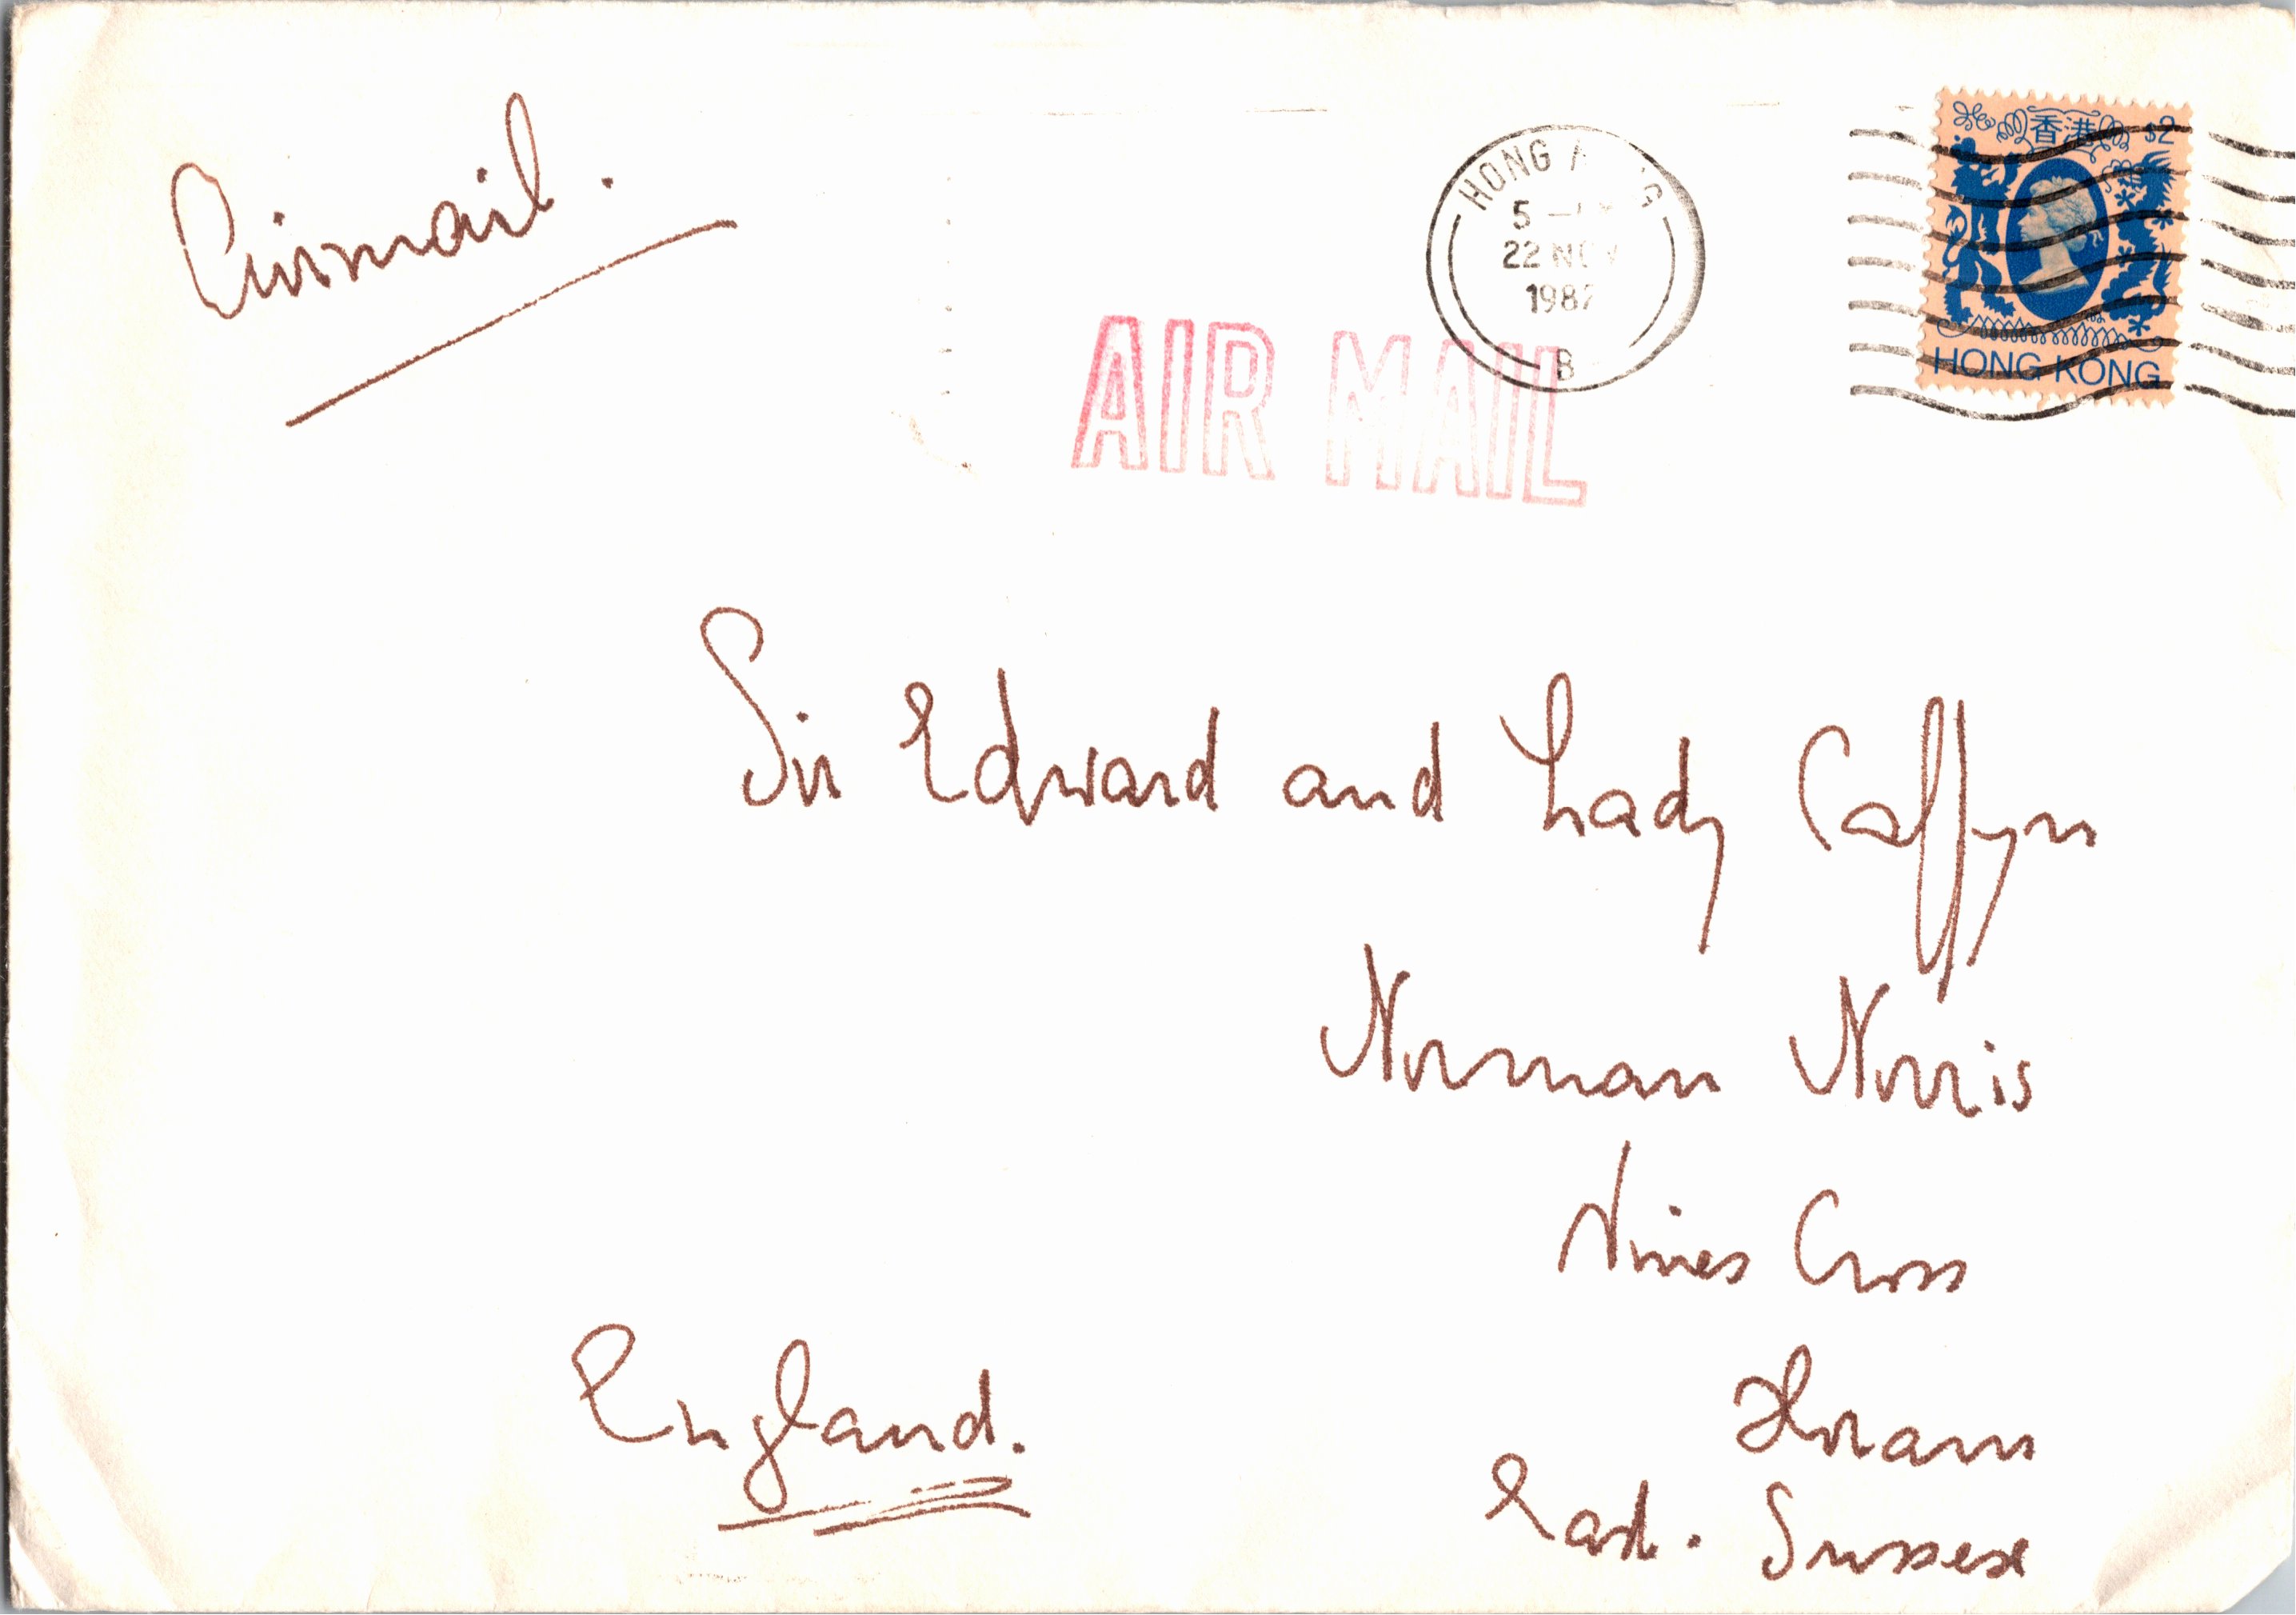 Airmail.
HONG
5
22 NOV
1982
B
香港 $2
HONG KONG
AIR MAIL
Sir Edward and Lady Caffyn
Norman Norris
Vines Cross
Horam
East. Sussex
England.